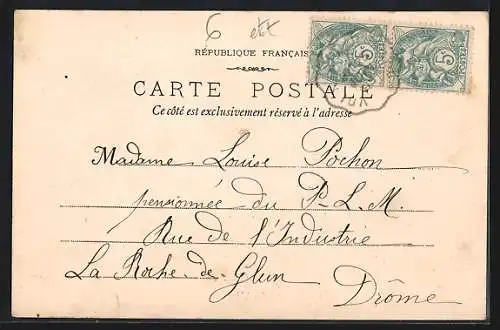 6
RÉPUBLIQUE FRANÇAIS
CARTE POSTALE
Ce côté est exclusivement réservé à l'adresse
5
5
Madame Louise Pochon
pensionnée du P-L.M.
Rue de l'Industrie
La Roche-de-Glun
Drôme